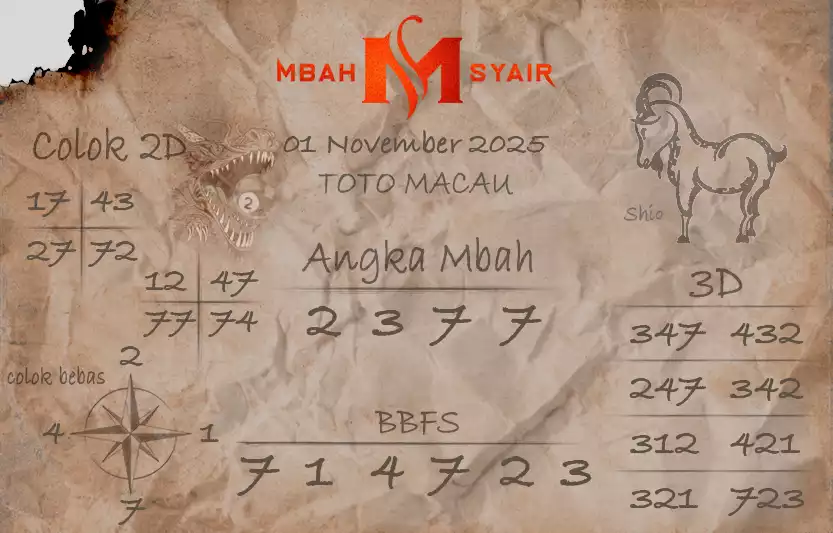 MBAH M SYAIR
Colok 2D
01 November 2025
TOTO MACAU
2
17 43
27 72
12 47
77 74
Shio
Angka Mbah
2 3 7 7
3D
347 432
247 342
312 421
321 723
colok bebas
2
4 1
7
BBFS
7 1 4 7 2 3